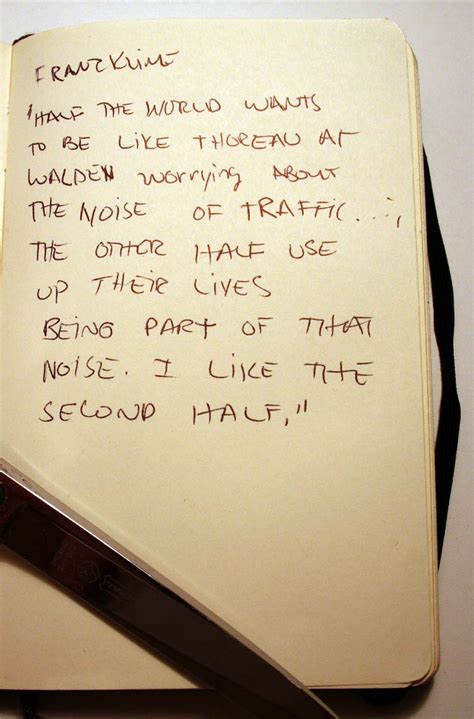 FRANZ KLINE
"HALF THE WORLD WANTS
TO BE LIKE THOREAU AT
WALDEN WORRYING ABOUT
THE NOISE OF TRAFFIC...,
THE OTHER HALF USE
UP THEIR LIVES
BEING PART OF THAT
NOISE. I LIKE THE
SECOND HALF,"